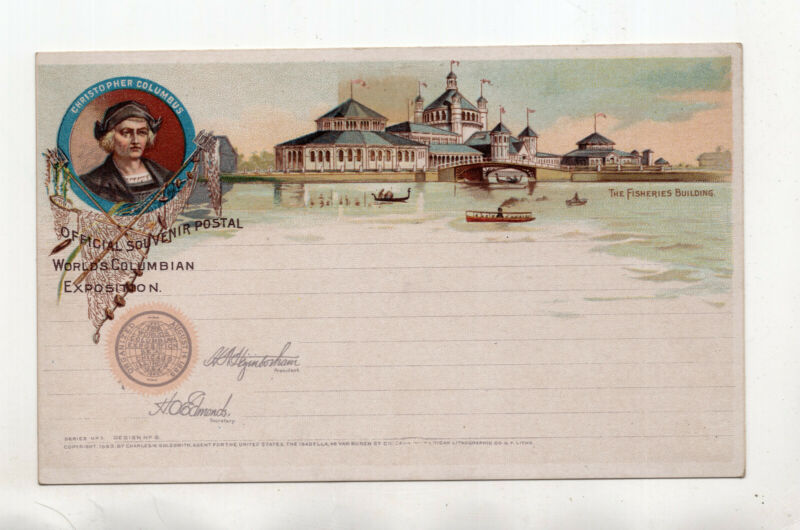 CHRISTOPHER COLUMBUS
THE FISHERIES BUILDING.
OFFICIAL SOUVENIR POSTAL
WORLDS COLUMBIAN
EXPOSITION.
ORGANIZED AUGUST
THE WORLD'S COLUMBIAN EXPOSITION
President
H.O. Edmonds.
Secretary
SERIES Nº 1. DESIGN Nº
COPYRIGHT 1893, BY CHARLES W. GOLDSMITH, AGENT FOR THE UNITED STATES, THE ISABELLA, 48 VAN BUREN ST. LITHOGRAPHIC CO. N.Y. LITHO.